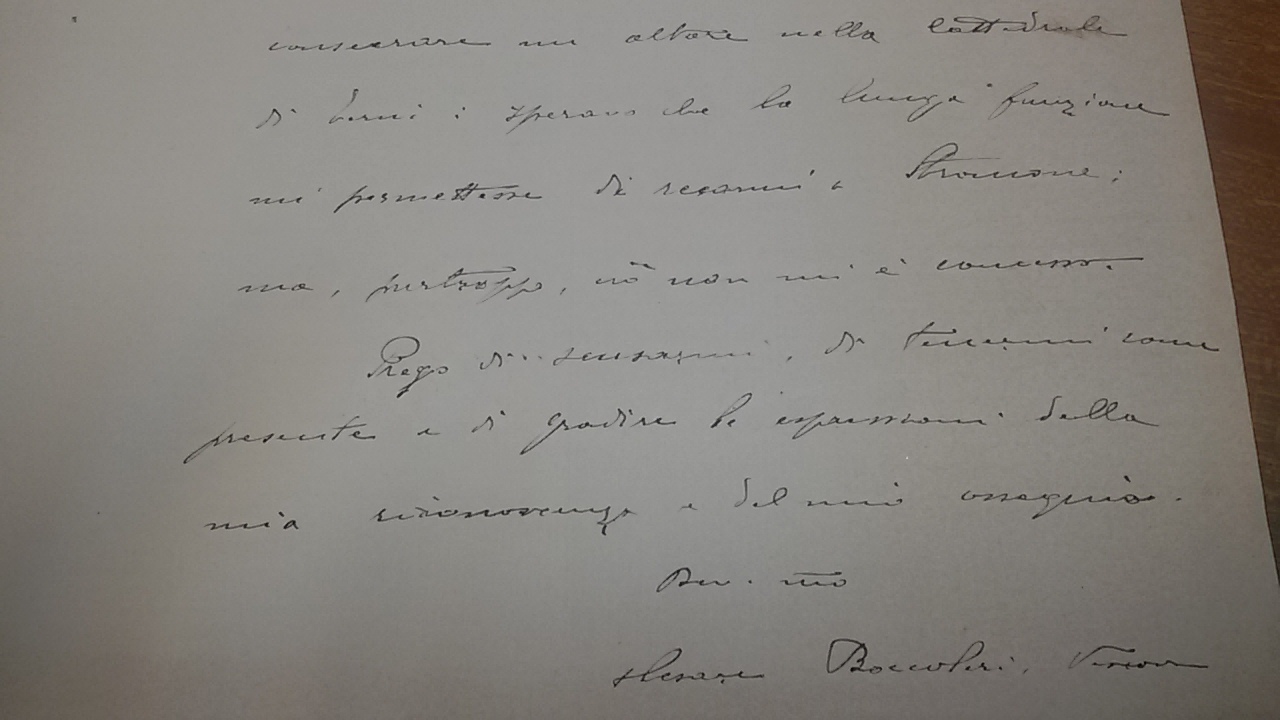 consacrare un altare nella Cattedrale
di Terni: speravo che la lunga funzione
mi permettesse di recarmi a Stroncone;
ma, purtroppo, ciò non mi è concesso.
Prego di scusarmi, di tenermi come
presente e di gradire le espressioni della
mia riconoscenza e del mio ossequio.
Dev.mo
Cesare Boccoleri, Vescovo